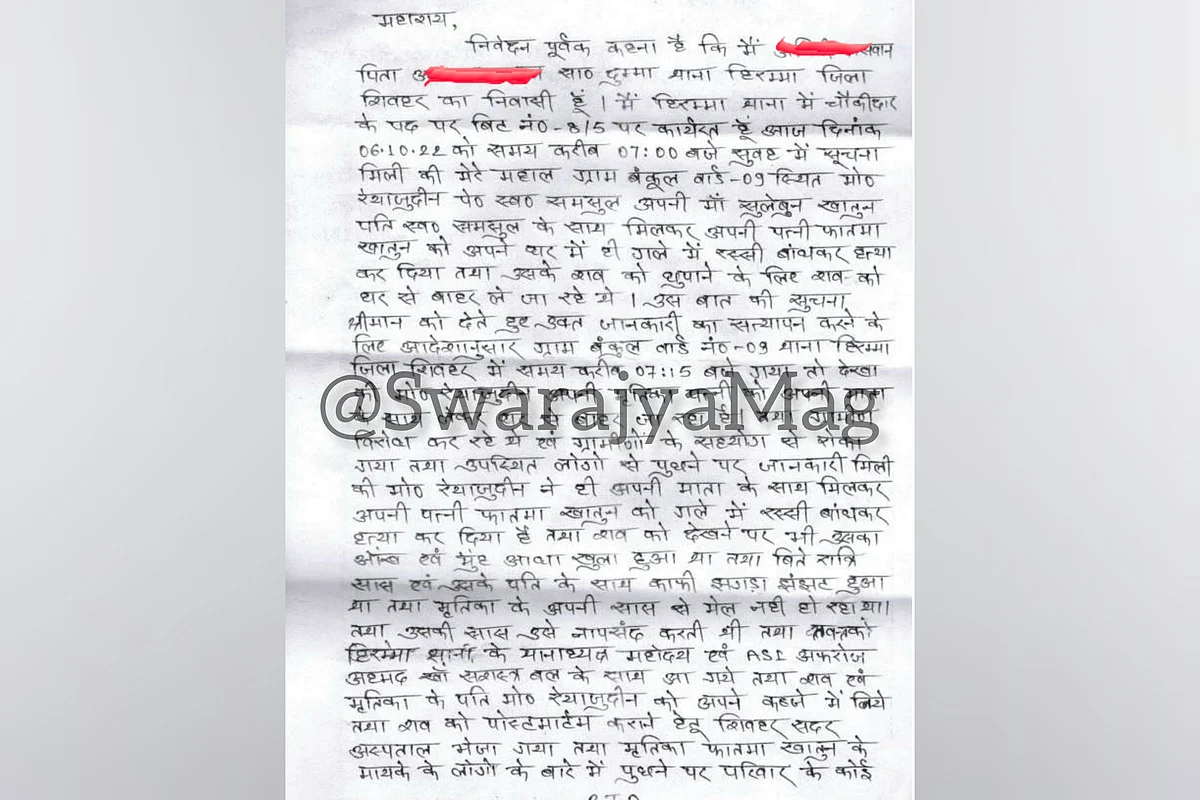 महाशय,
निवेदन पूर्वक कहना है कि मैं
पिता सा० दुम्मा थाना हिरम्मा जिला
शिवहर का निवासी हूँ । मैं हिरम्मा थाना में चौकीदार
के पद पर बिट नं०-8/5 पर कार्यरत हूँ आज दिनांक
06.10.22 को समय करीब 07:00 बजे सुवह में सूचना
मिली की मेरे महाल ग्राम बंकूल वार्ड-09 स्थित मो०
रेयाजुदीन पे० स्व० समसुल अपनी माँ सुलेबुन खातुन
पति स्व० समसुल के साथ मिलकर अपनी पत्नी फातमा
खातुन को अपने घर में ही गले में रस्सी बांधकर हत्या
कर दिया तथा उसके शव को छुपाने के लिए शव को
घर से बाहर ले जा रहे थे । उस बात की सुचना
श्रीमान को देते हुए उक्त जानकारी का सत्यापन करने के
लिए आदेशानुसार ग्राम बंकुल वार्ड नं०-09 थाना हिरम्मा
जिला शिवहर में समय करीब 07:15 बजे गया तो देखा
@SwarajyaMag
की मो० रेयाजुदीन अपनी पत्नी को अपनी माता
के साथ लेकर घर से बाहर जा रहा है। तथा ग्रामीण
विरोध कर रहे थे एवं ग्रामीणों के सहयोग से रोका
गया तथा उपस्थित लोगो से पुछने पर जानकारी मिली
की मो० रेयाजुदीन ने ही अपनी माता के साथ मिलकर
अपनी पत्नी फातमा खातुन को गले में रस्सी बांधकर
हत्या कर दिया है तथा शव को देखने पर भी उसका
आँख एवं मुंह आधा खुला हुआ था तथा बिते रात्रि
सास एवं उसके पति के साथ काफी झगड़ा झंझट हुआ
था तथा मृतिका के अपनी सास से मेल नही हो रहा था।
तथा उसकी सास उसे नापसंद करती थी तथा
हिरम्मा थाना के थानाध्यक्ष महोदय एवं ASI अफरोज
अहमद खाँ सशस्त्र बल के साथ आ गये तथा शव एवं
मृतिका के पति मो० रेयाजुदीन को अपने कब्जे में लिये
तथा शव को पोस्टमार्टम कराने हेतू शिवहर सदर
अस्पताल भेजा गया तथा मृतिका फातमा खातुन के
मायके के लोगो के बारे में पुछने पर परिवार के कोई